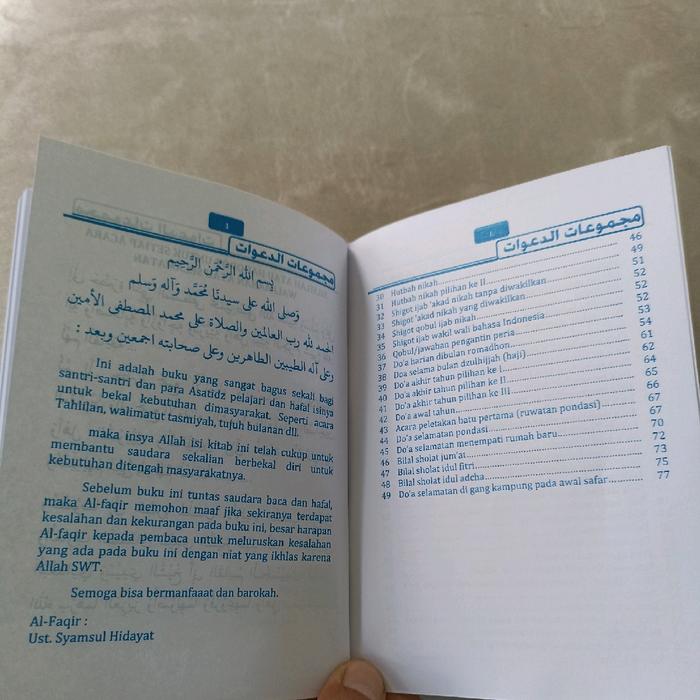 1
مجموعات الدعوات
بِسْمِ اللهِ الرَّحْمٰنِ الرَّحِيْمِ
وَصَلَى اللهُ عَلَى سَيِّدِنَا مُحَمَّدٍ وَآلِهِ وَسَلِّم
الحمد لله رب العالمين والصلاة على محمد المصطفى الأمين
وعلى آله الطيبين الطاهرين وعلى صحابته اجمعين وبعد :
Ini adalah buku yang sangat bagus sekali bagi
santri-santri dan para Asatidz pelajari dan hafal isinya
untuk bekal kebutuhan dimasyarakat. Seperti acara
Tahlilan, walimatut tasmiyah, tujuh bulanan dll.
maka insya Allah isi kitab ini telah cukup untuk
membantu saudara sekalian berbekal diri untuk
kebutuhan ditengah masyarakatnya.
Sebelum buku ini tuntas saudara baca dan hafal,
maka Al-faqir memohon maaf jika sekiranya terdapat
kesalahan dan kekurangan pada buku ini, besar harapan
Al-faqir kepada pembaca untuk meluruskan kesalahan
yang ada pada buku ini dengan niat yang ikhlas karena
Allah SWT.
Semoga bisa bermanfaaat dan barokah.
Al-Faqir :
Ust. Syamsul Hidayat
مجموعات الدعوات
30 Hutbah nikah 46
31 Hutbah nikah pilihan ke II 49
32 Shigot ijab 'akad nikah tanpa diwakilkan 51
33 Shigot 'akad nikah yang diwakilkan 52
34 Shigot qobul ijab nikah 52
35 Shigot ijab wakil wali bahasa Indonesia 53
36 Qobul/jawahan pengantin peria 54
37 Do'a harian dibulan romadhon 61
38 Doa selama bulan dzulhijjah (haji) 62
39 Do'a akhir tahun pilihan ke I 64
40 Do'a akhir tahun pilihan ke II 65
41 Do'a akhir tahun pilihan ke III 66
42 Do'a awal tahun 67
43 Acara peletakan batu pertama (ruwatan pondasi) 67
44 Do'a selamatan pondasi 70
45 Do'a selamatan menempati rumah baru 72
46 Bilal sholat jum'at 73
47 Bilal sholat idul fitri 75
48 Bilal sholat idul adcha
49 Do'a selamatan di gang kampung pada awal safar 77